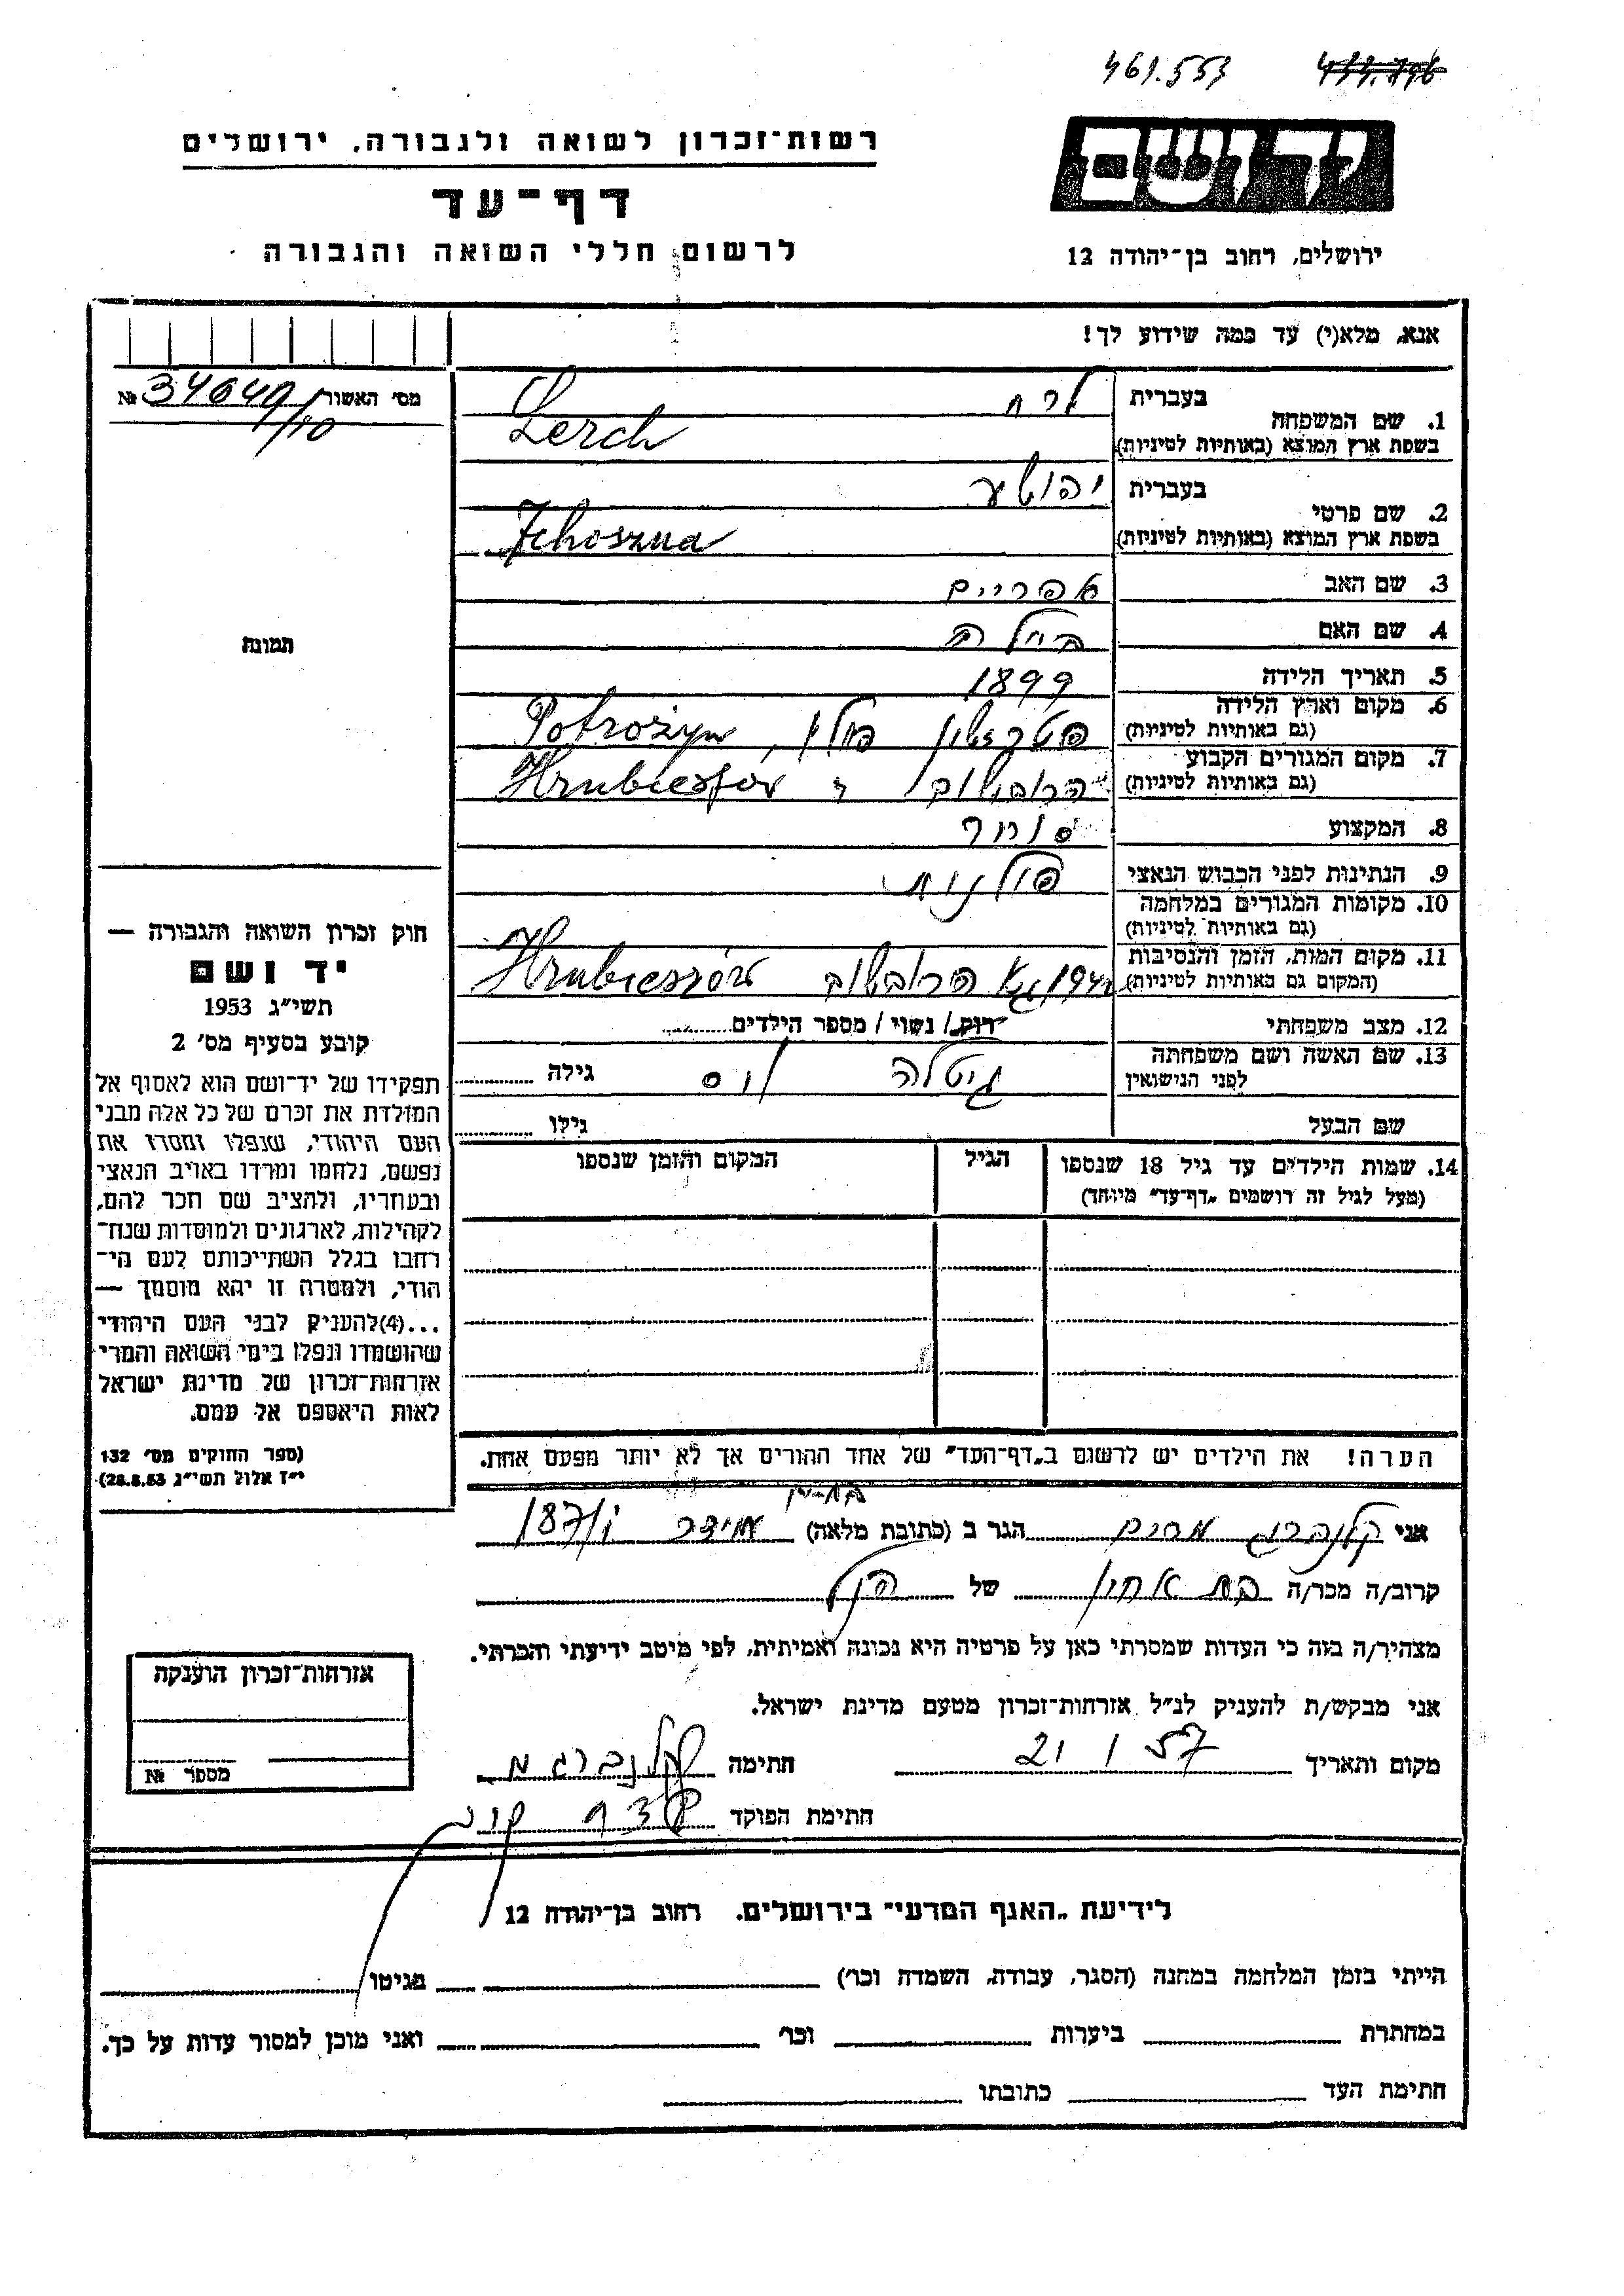 461.553
רשות־זכרון לשואה ולגבורה, ירושלים
דף־עד
לרשום חללי השואה והגבורה
יד ושם
ירושלים, רחוב בן־יהודה 12
אנא, מלא(י) עד כמה שידוע לך!
מס׳ האשור № 34649/10
1. שם המשפחה
בעברית לרח
בשפת ארץ המוצא (באותיות לטיניות) Lerch
2. שם פרטי
בעברית יהושע
בשפת ארץ המוצא (באותיות לטיניות) Jehoszua
3. שם האב אפריים
4. שם האם ביילה
5. תאריך הלידה 1899
6. מקום וארץ הלידה
(גם באותיות לטיניות) פולין, Potrożyn
7. מקום המגורים הקבוע
(גם באותיות לטיניות) הרובשוב Hrubieszow
8. המקצוע סוחר
9. הנתינות לפני הכבוש הנאצי פולנית
10. מקומות המגורים במלחמה
(גם באותיות לטיניות)
11. מקום המות, הזמן והנסיבות
(המקום גם באותיות לטיניות) 1942 הרובשוב Hrubieszów
12. מצב משפחתי רוק/ נשוי / מספר הילדים
13. שם האשה ושם משפחתה
לפני הנישואין גיטלה גילה
שם הבעל גילו
14. שמות הילדים עד גיל 18 שנספו
(מעל לגיל זה רושמים „דף־עד״ מיוחד)
הגיל
המקום והזמן שנספו
הערה! את הילדים יש לרשום ב„דף־העד״ של אחד ההורים אך לא יותר מפעם אחת.
תמונה
חוק זכרון השואה והגבורה —
יד ושם
תשי״ג 1953
קובע בסעיף מס׳ 2
תפקידו של יד־ושם הוא לאסוף אל
המולדת את זכרם של כל אלה מבני
העם היהודי, שנפלו ומסרו את
נפשם, נלחמו ומרדו באויב הנאצי
ובעוזריו, ולהציב שם וזכר להם,
לקהילות, לארגונים ולמוסדות שנח־
רבו בגלל השתייכותם לעם הי־
הודי, ולמטרה זו יהא מוסמך —
...(4)להעניק לבני העם היהודי
שהושמדו ונפלו בימי השואה והמרי
אזרחות־זכרון של מדינת ישראל
לאות היאספם אל עמם.
(ספר החוקים מס׳ 132
י״ז אלול תשי״ג 28.8.53)
אני קלנברג מרים הגר ב (כתובת מלאה) 187/
קרוב/ה מכר/ה בת אחיו של הנ״ל
מצהיר/ה בזה כי העדות שמסרתי כאן על פרטיה היא נכונה ואמיתית, לפי מיטב ידיעתי והכרתי.
אני מבקש/ת להעניק לנ״ל אזרחות־זכרון מטעם מדינת ישראל.
מקום ותאריך 21 1 57 חתימה קלנברג מ
חתימת הפוקד
אזרחות־זכרון הוענקה
מספר №
לידיעת „האגף המדעי״ בירושלים. רחוב בן־יהודה 12
הייתי בזמן המלחמה במחנה (הסגר, עבודה, השמדה וכו׳) בגיטו
במחתרת ביערות וכו׳ ואני מוכן למסור עדות על כך.
חתימת העד כתובתו